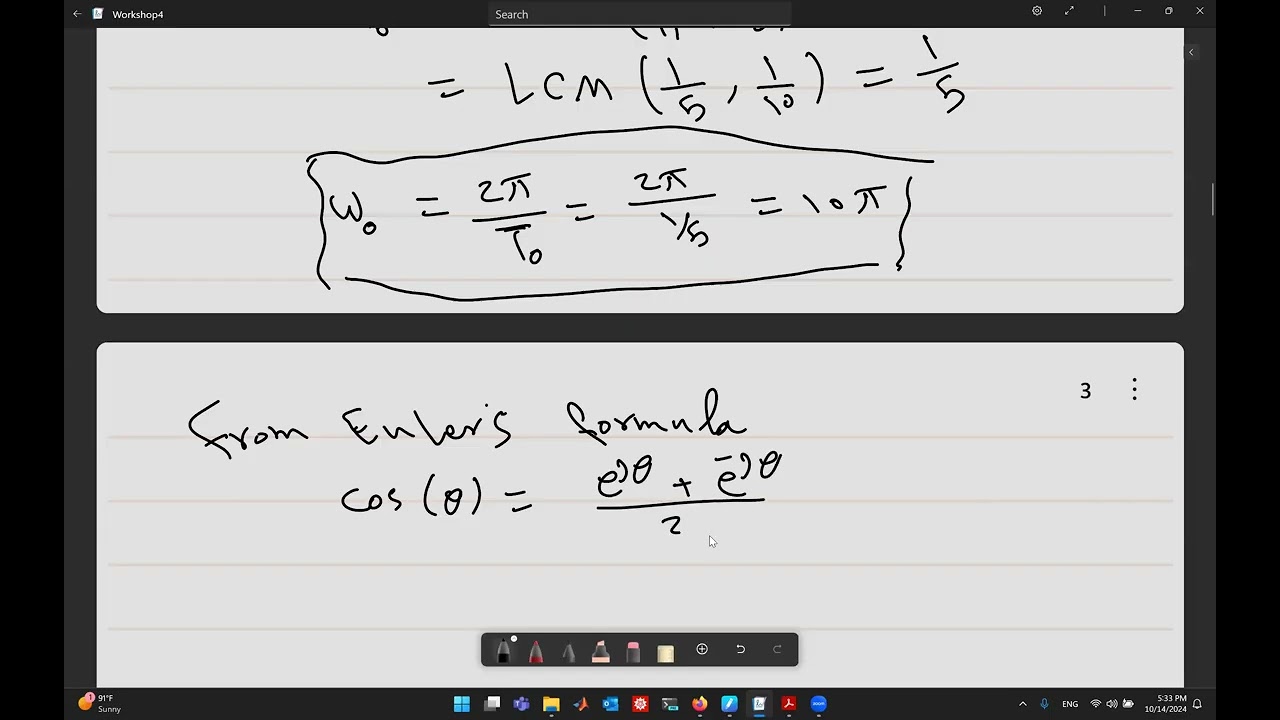 Workshop4
Search
= LCM (1/5, 1/10) = 1/5
ω₀ = 2π/T₀ = 2π/1/5 = 10π
3
From Euler's formula
cos(θ) = e^jθ + e^-jθ / 2
91°F
Sunny
1
zoom
ENG
5:33 PM
10/14/2024